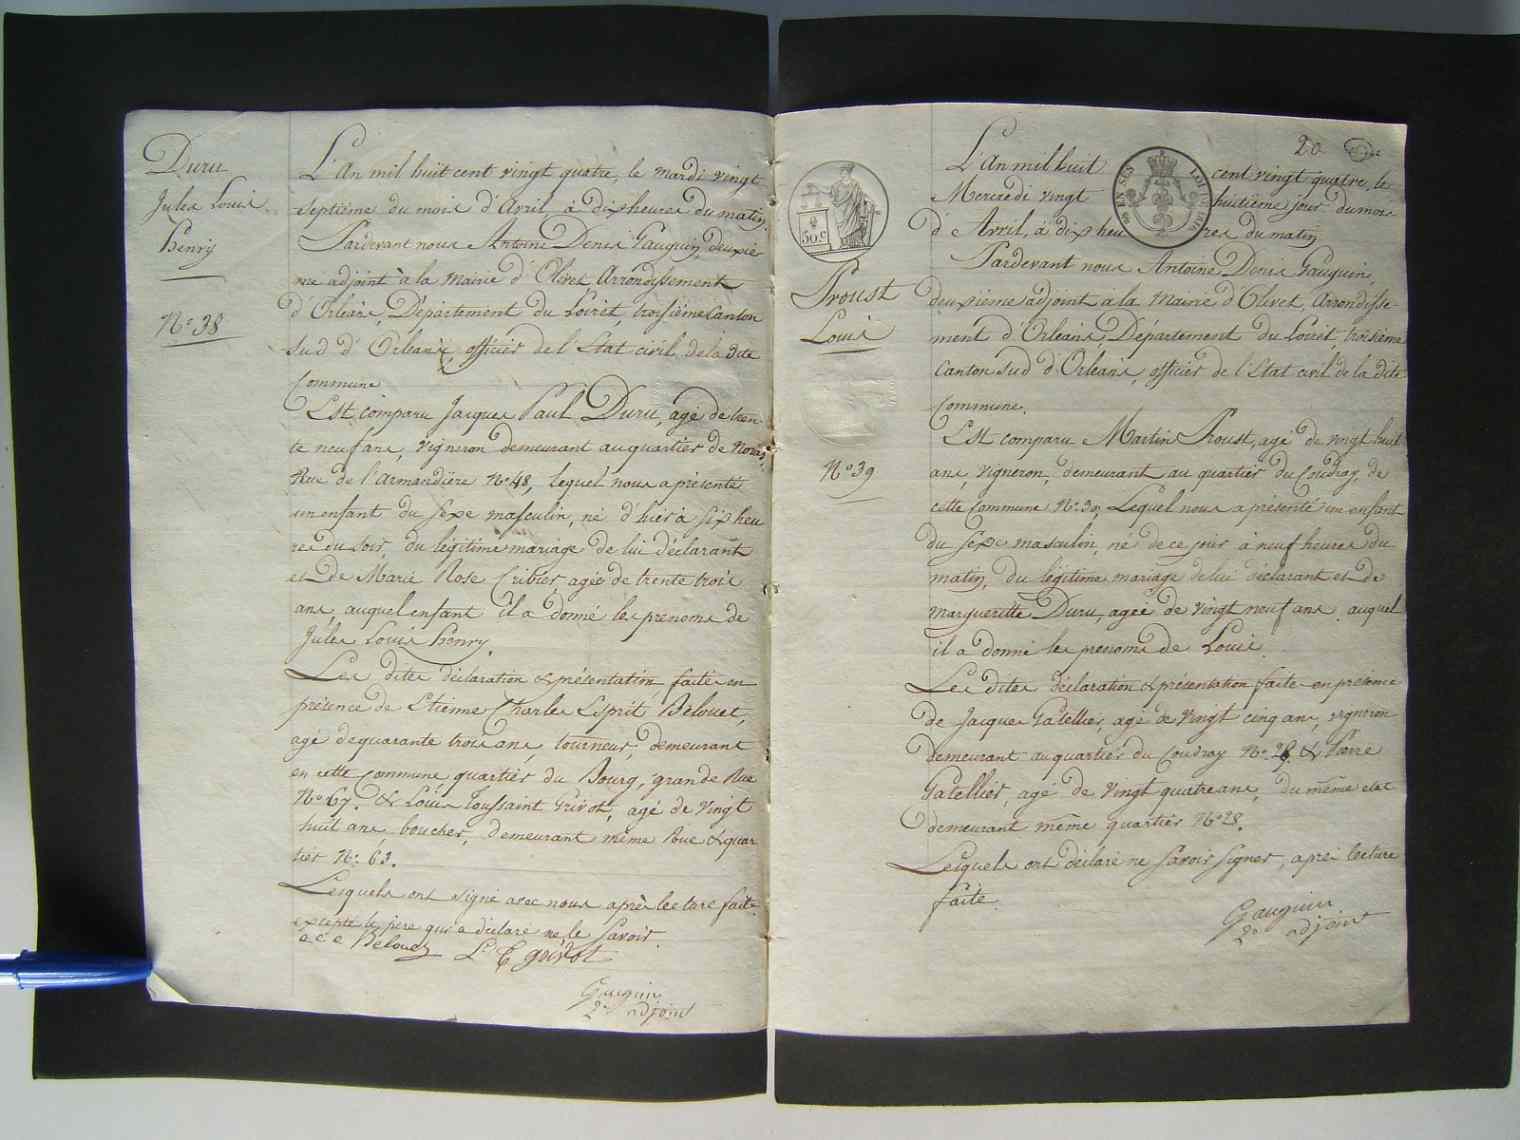 Duru
Jules Louis
Henry
N.° 38
L'An mil huit cent vingt quatre, le mardi vingt
septième du mois d'Avril à dix heures du matin,
Pardevant nous Antoine Denis Gauguin, deuxiè
me adjoint à la Mairie d'Olivet, Arrondissement
d'Orléans, Département du Loiret, troisième Canton
sud d'Orléans, officier de l'Etat civil de la dite
Commune
Est comparu Jacques Paul Duru, agé de tren-
te neuf ans, vigneron demeurant au quartier de
Rue de l'Armandière N.° 48, lequel nous a présenté
un enfant du sexe masculin, né d'hier à six heu
res du soir, du légitime mariage de lui déclarant
et de Marie Rose Cribier, agée de trente trois
ans auquel enfant il a donné les prenoms de
Jules Louis Henry.
Les dites déclaration & présentation faites en
présence de Etienne Charles Esprit Belouet,
agé de quarante trois ans, tourneur, demeurant
en cette Commune quartier du Bourg, grande Rue
N.° 67. & Louis Toussaint Grivot, agé de vingt
huit ans boucher, demeurant même Rue & quar
tier N.° 63.
Lesquels ont signé avec nous après lecture faite
excepté le père qui a déclaré ne le savoir.
e c e Belouet L T grivot
Gauguin
2e adjoint
20
50 C
Proust
Louis
N.° 39
L'An mil huit cent vingt quatre, le
Mercredi vingt huitième jour du mois
d'Avril, à dix heures du matin
Pardevant nous Antoine Denis Gauguin,
deuxième adjoint à la Mairie d'Olivet, Arrondisse-
ment d'Orléans, Département du Loiret, troisième
Canton sud d'Orléans, officier de l'Etat civil de la dite
Commune.
Est comparu Martin Proust, agé de vingt huit
ans, vigneron, demeurant au quartier du Coudray, de
cette Commune N.° 30, Lequel nous a présenté un enfant
du sexe masculin, né de ce jour à neuf heures du
matin, du légitime mariage de lui déclarant et de
Margueritte Duru, agée de vingt neuf ans auquel
il a donné les prenoms de Louis.
Les dites déclaration & présentation faites en présence
de Jacques Gatellier, agé de vingt cinq ans, vigneron
demeurant au quartier du Coudray N.° & Pierre
Gatellier, agé de vingt quatre ans, du même etat
demeurant même quartier N.° 28.
Lesquels ont déclaré ne savoir signer, après lecture
faite.
Gauguin
2e adjoint